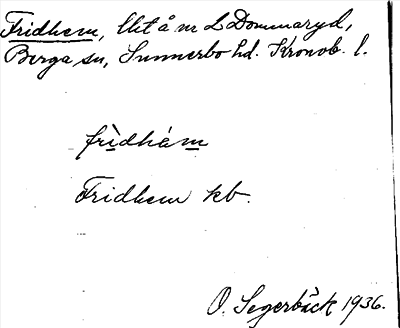 Fridhem, lht å nr 2 Dommaryd,
Berga sn, Sunnerbo hd. Kronob. l.
frìdhém
Fridhem kb.
O. Segerbäck 1936.